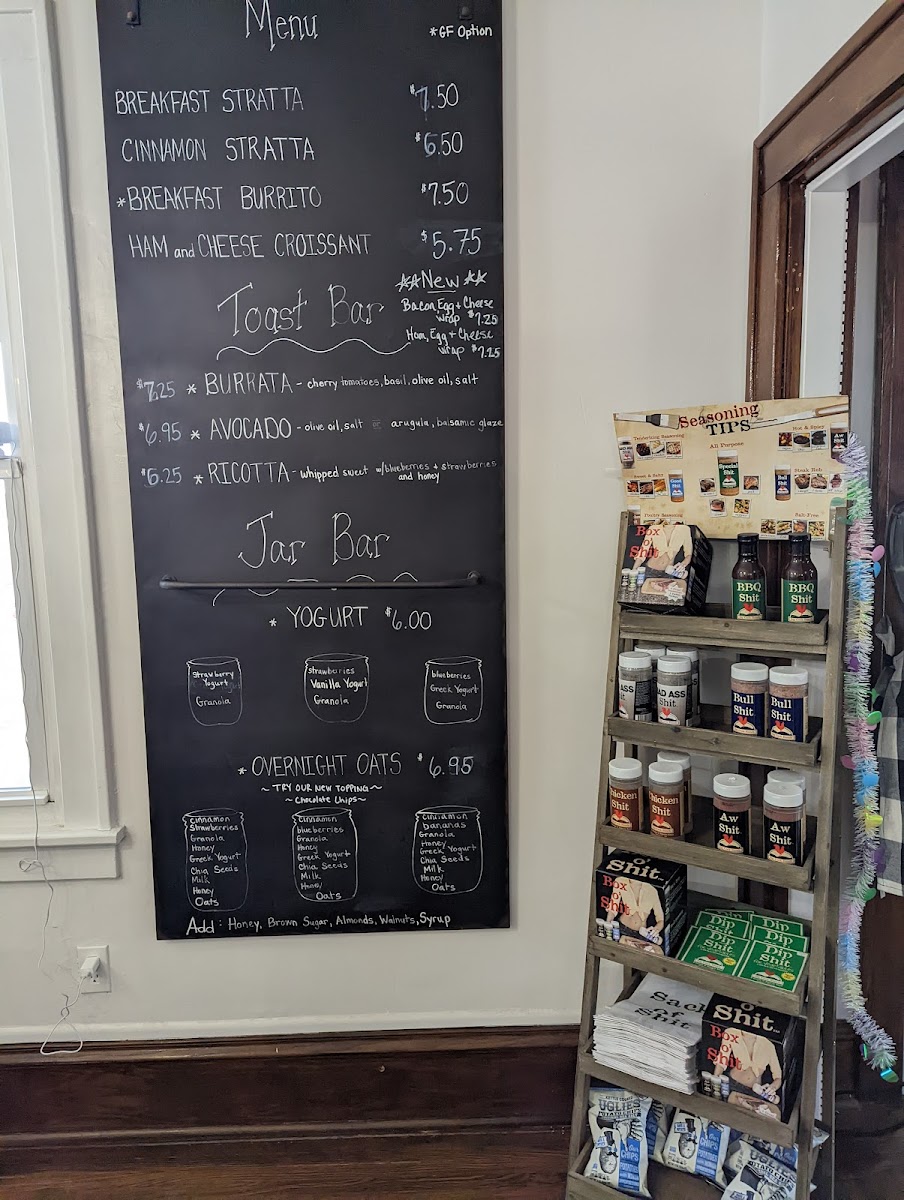 Menu
*GF Option
BREAKFAST STRATTA $7.50
CINNAMON STRATTA $6.50
*BREAKFAST BURRITO $7.50
HAM and CHEESE CROISSANT $5.75
**New**
Bacon, Egg + Cheese
wrap $7.25
Ham, Egg + Cheese
wrap $7.25
Toast Bar
$7.25 * BURRATA - cherry tomatoes, basil, olive oil, salt
$6.95 * AVOCADO - olive oil, salt or arugula, balsamic glaze
$6.25 * RICOTTA - whipped sweet w/blueberries + strawberries
and honey
Jar Bar
* YOGURT $6.00
strawberry
Yogurt
Granola
strawberries
Vanilla Yogurt
Granola
blueberries
Greek Yogurt
Granola
* OVERNIGHT OATS $6.95
~ TRY OUR NEW TOPPING ~
~ Chocolate Chips ~
Cinnamon
Strawberries
Granola
Honey
Greek Yogurt
Chia Seeds
Milk
Honey
Oats
Cinnamon
blueberries
Granola
Honey
Greek Yogurt
Chia Seeds
Milk
Honey
Oats
Cinnamon
bananas
Granola
Honey
Greek Yogurt
Chia Seeds
Milk
Honey
Oats
Add: Honey, Brown Sugar, Almonds, Walnuts, Syrup
Seasoning
TIPS
Tenderizing Seasoning
All Purpose
Hot & Spicy
Special Shit
Good Shit
Bull Shit
Steak Rub
Salt-Free
Box
o'
Shit
BBQ
Shit
BBQ
Shit
ASS
BAD ASS
Shit
Bull
Shit
Bull
Shit
Chicken
Shit
Chicken
Shit
A.w
Shit
A.w
Shit
O' Shit
Box
o'
Shit
Dip
Shit
Dip
Shit
Dip
Dip
Sack
of
Shit
O'
Shit
Box
o'
Shit
UGLIES
POTATO CHIPS
UGLIES